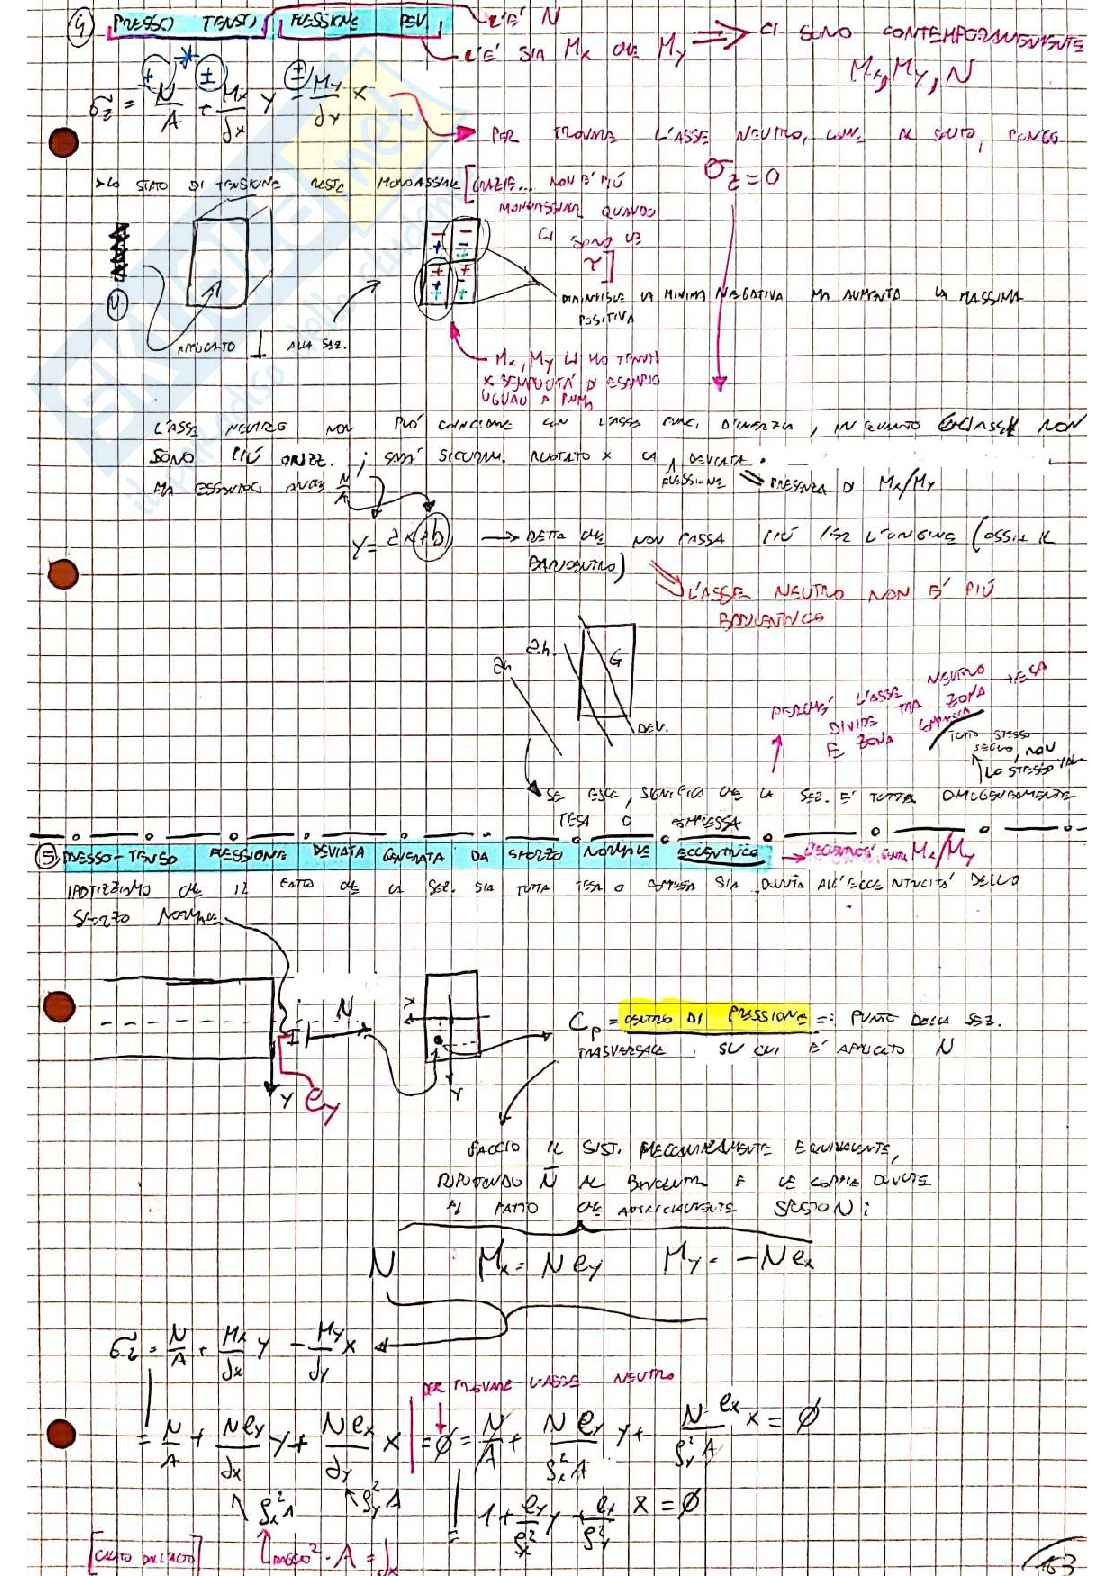 ④ PRESSO TENSO FLESSIONE DEV.
C'È N
C'È SIA Mx CHE My ⇒ CI SONO CONTEMPORANEAMENTE
Mx, My, N
σz = N/A + Mx/Jx y ± My/Jy x
PER TROVARE L'ASSE NEUTRO, COME AL SOLITO, PONGO
σz = 0
LO STATO DI TENSIONE RESTA MONOASSIALE [GRAZIE... NON È PIÙ
MONOASSIALE QUANDO
CI SONO LE
τ]
DIMINUISCE LA MINIMA NEGATIVA MA AUMENTA LA MASSIMA
POSITIVA
APPLICATO ⊥ ALLA SEZ.
Mx, My LI HO TENUTI
X SEMPLICITÀ DI ESEMPIO
UGUALI A PRIMA
L'ASSE NEUTRO NON PUÒ COINCIDERE CON L'ASSE PRINC. D'INERZIA, IN QUANTO GLI ASSI NON
SONO PIÙ ORIZZ. ; SARÀ SICURAM. RUOTATO X LA DEVIATA.
FLESSIONE PRESENZA DI Mx/My
MA ESSENDOCI ANCHE N/A
y = ax + b → RETTA CHE NON PASSA PIÙ PER L'ORIGINE (OSSIA IL
BARICENTRO)
L'ASSE NEUTRO NON È PIÙ
BARICENTRICO
a.n.
a.n.
G
DEV.
PERCHÉ L'ASSE NEUTRO
DIVIDE TRA ZONA TESA
E ZONA COMPRESSA
TUTTO STESSO
SEGNO, NON
LO STESSO VAL.
SE ESCE, SIGNIFICA CHE LA SEZ. È TUTTA OMOGENEAMENTE
TESA O COMPRESSA
⑤ PRESSO-TENSO FLESSIONE DEVIATA GENERATA DA SFORZO NORMALE ECCENTRICO → Mx/My
IPOTIZZIAMO CHE IL FATTO CHE LA SEZ. SIA TUTTA TESA O COMPRESSA SIA DOVUTA ALL'ECCENTRICITÀ DELLO
SFORZO NORMALE
N
x
y
y
ey
Cp = CENTRO DI PRESSIONE =: PUNTO DELLA SEZ.
TRASVERSALE SU CUI È APPLICATO N
FACCIO IL SIST. MECCANICAMENTE EQUIVALENTE,
RIPORTANDO N AL BARICENTRO E LE COPPIE DOVUTE
AL FATTO CHE
N Mx = N ey My = -N ex
σz = N/A + Mx/Jx y - My/Jy x
PER TROVARE L'ASSE NEUTRO
= N/A + N ey/Jx y + N ex/Jy x = ∅ = N/A + N ey/ρx² A y + N ex/ρy² A x = ∅
ρx² A ρy² A
= 1 + ey/ρx² y + ex/ρy² x = ∅
RAGGIO² · A = Jx
163